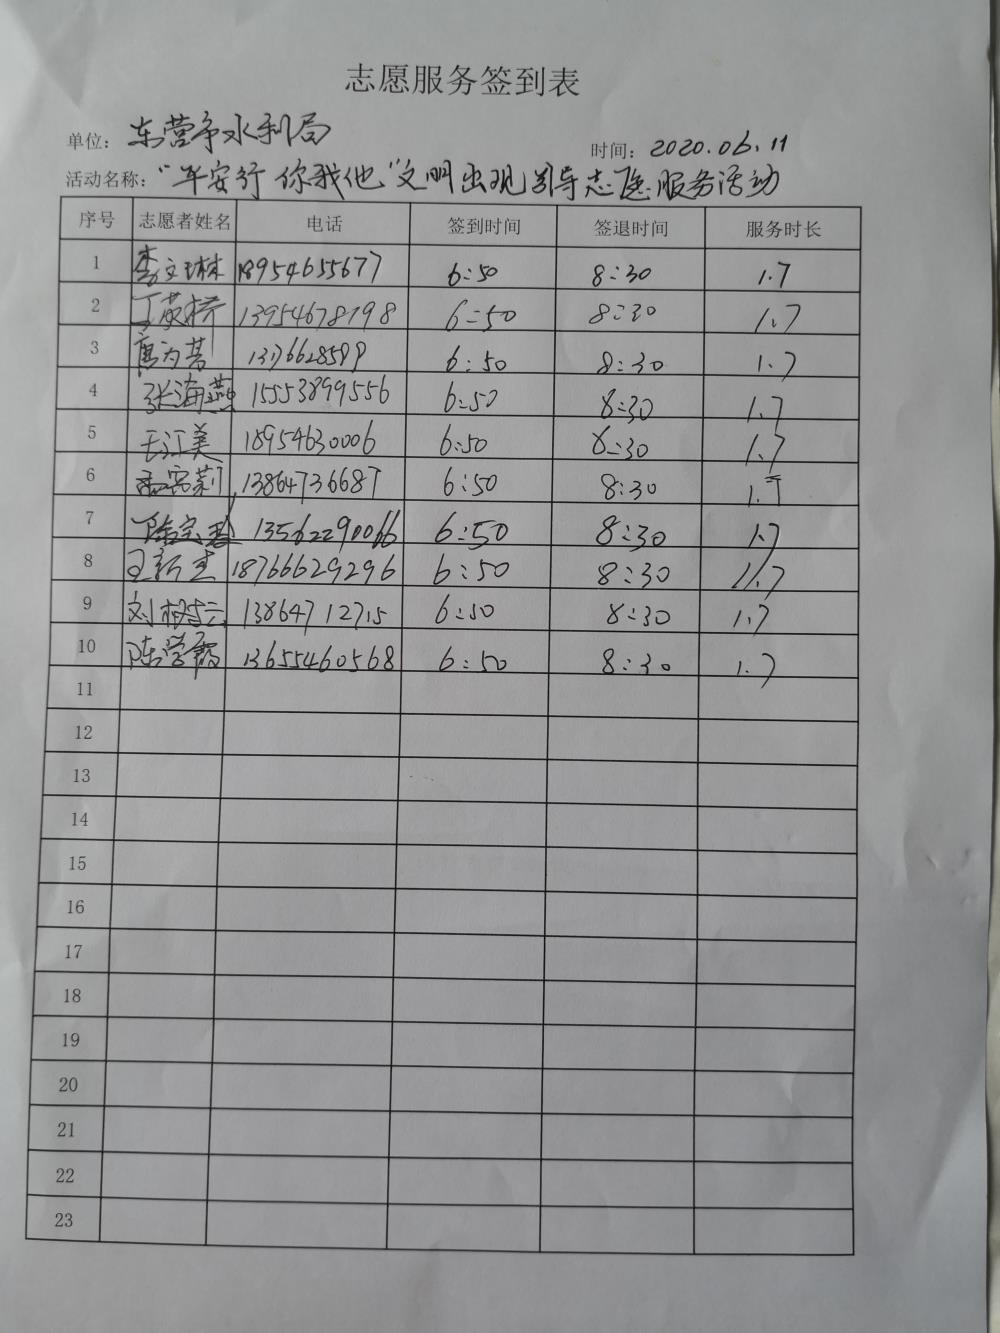 志愿服务签到表
单位：东营市水利局 时间：2020.06.11
活动名称："平安行 你我他"文明出观引导志愿服务活动
序号 志愿者姓名 电话 签到时间 签退时间 服务时长
1 李文琳 18954655677 6:50 8:30 1.7
2 丁英桥 13954678198 6:50 8:30 1.7
3 6:50 8:30 1.7
4 张海燕 15553899556 6:50 8:30 1.7
5 王江美 18954630006 6:50 8:30 1.7
6 13864736687 6:50 8:30 1.7
7 13562290066 6:50 8:30 1.7
8 王新杰 18766629296 6:50 8:30 1.7
9 刘树云 13864712715 6:50 8:30 1.7
10 陈学霞 13655460568 6:50 8:30 1.7
11
12
13
14
15
16
17
18
19
20
21
22
23